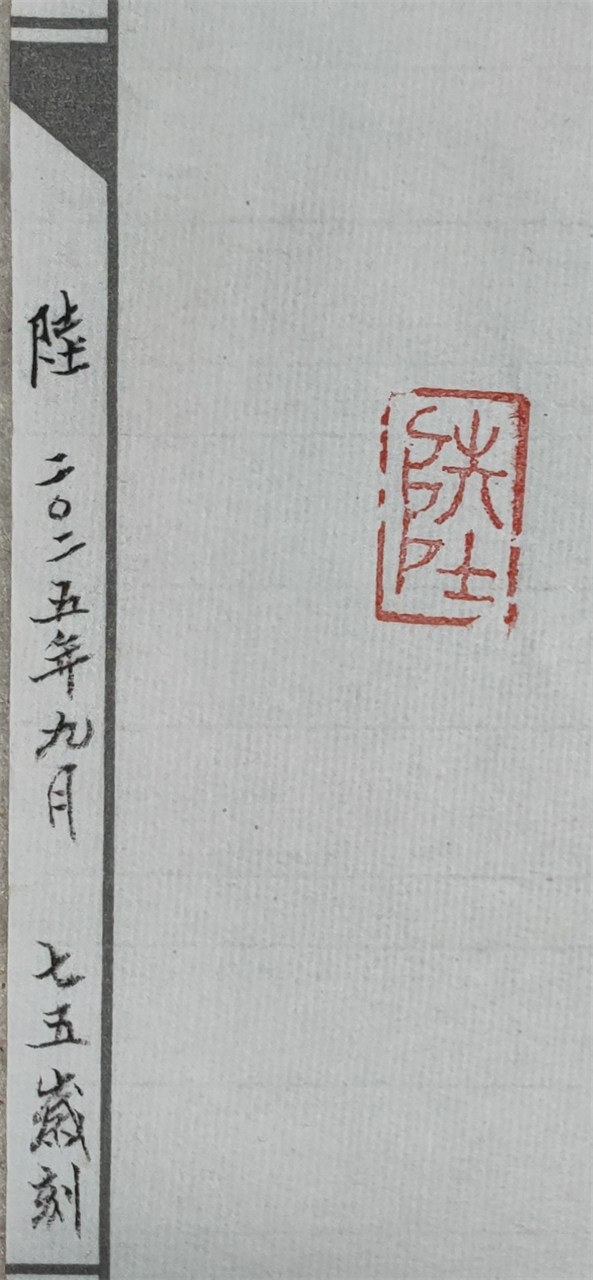 陸
陸 二〇二五年九月 七五歲刻